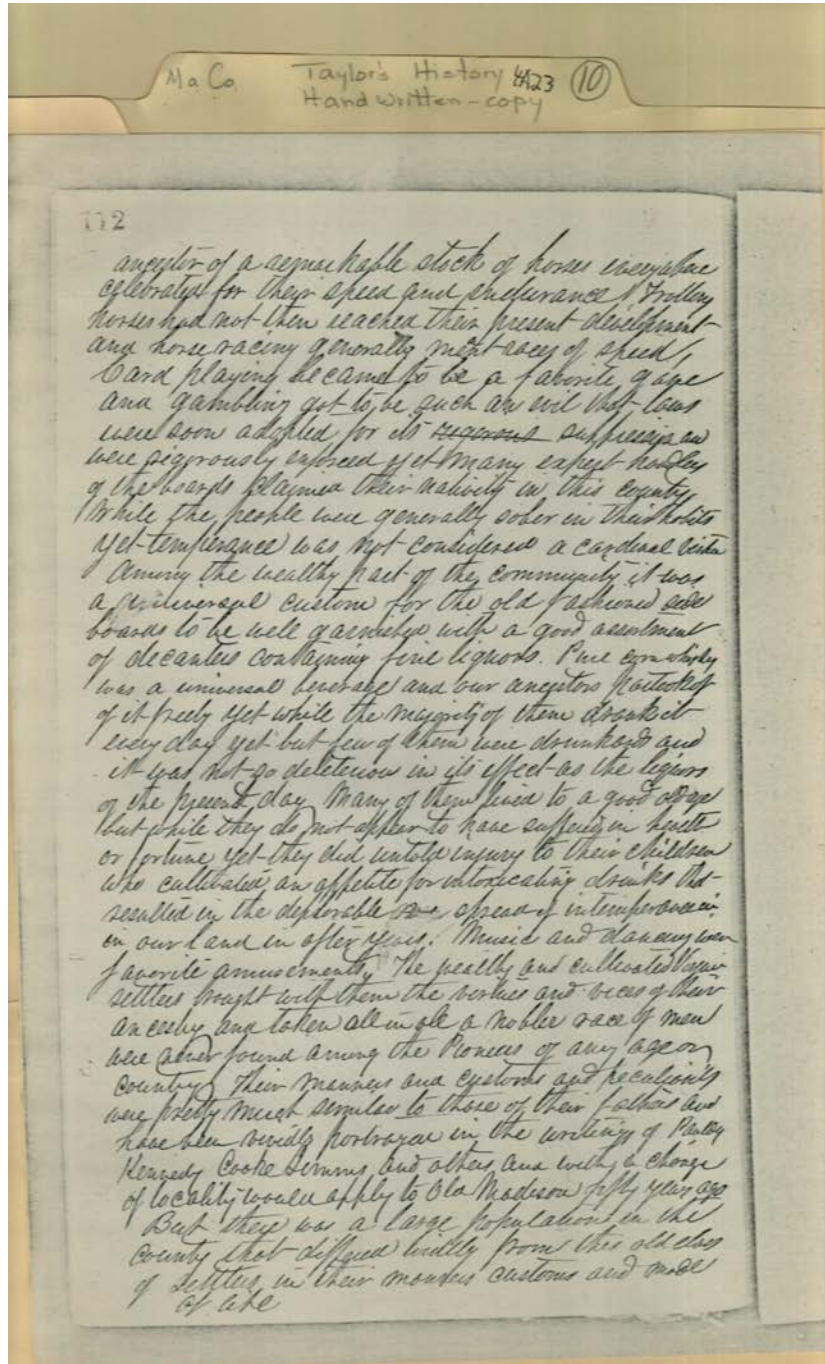 Ma Co. Taylor's History 4A23 10
Handwritten - copy
112
ancestor of a remarkable stock of horses everywhere
celebrated for their speed and endurance. Trotting
horses had not then reached their present development
and horse racing generally ment races of speed,
Card playing became to be a favorite game
and gambling got to be such an evil that laws
were soon adopted for its rigorous suppression and
were rigorously enforced yet many expert
of the boards claimed their nativity in this county
While the people were generally sober in their habits
yet temperance was not considered a cardinal virtue
Among the wealthy part of the community it was
a universal custom for the old fashioned side
boards to be well garnished with a good assortment
of decanters containing fine liquors. Pure corn whisky
was a universal beverage and our ancestors partook of
of it freely yet while the majority of them drank it
every day yet but few of them were drunkards and
it was not so deleterious in its effect as the liquors
of the present day. Many of them lived to a good old age
but while they do not appear to have suffered in health
or fortune yet they did untold injury to their children
who cultivated an appetite for intoxicating drinks that
resulted in the deplorable spread of intemperance in
in our land in after years. Music and dancing were
favorite amusements. The wealthy and cultivated Virginia
settlers brought with them the virtues and vices of their
ancestry and taken all in all a nobler race of men
were never found among the Pioneers of any age or
country. Their manners and customs and peculiarities
were pretty much similar to those of their fathers and
have been vividly portrayed in the writings of
Kennedy Cooke Simms and others and with a change
of locality would apply to Old Madison fifty years ago
But there was a large population in the
county that differed widely from this old class
of settlers in their manners customs and mode
of life